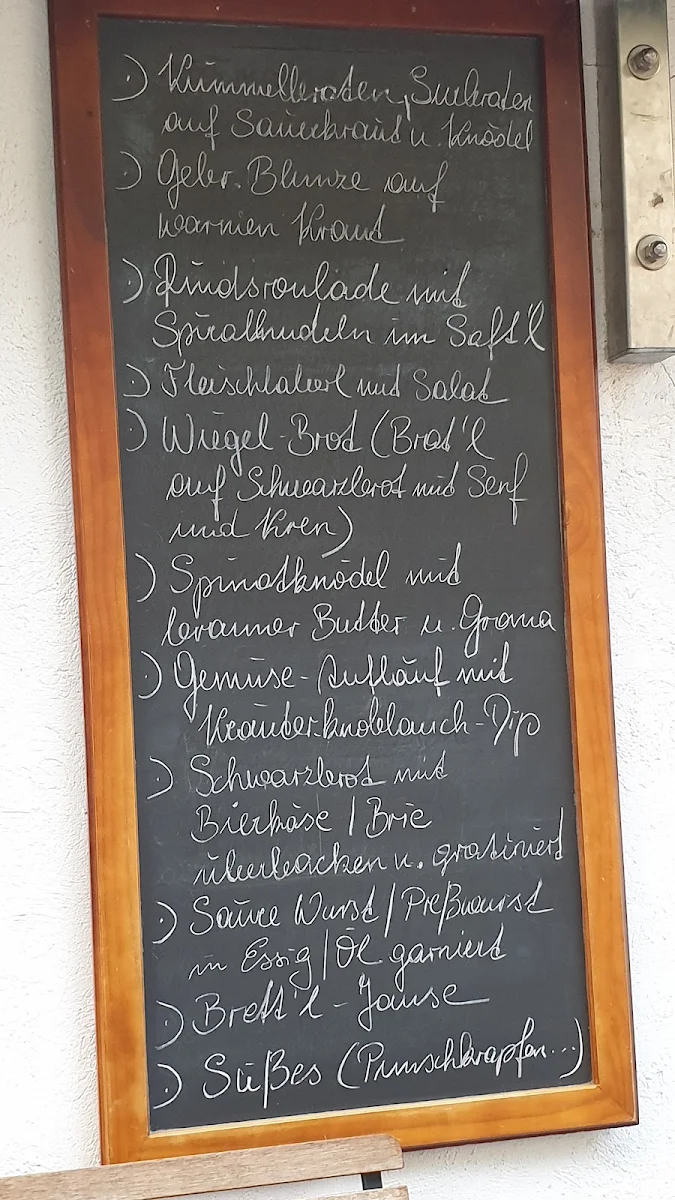 ·) Kümmelbraten, Surbraten
auf Sauerkraut u. Knödel
·) Gebr. Blunze auf
warmen Kraut
·) Rindsroulade mit
Spiralnudeln im Saft'l
·) Fleischlaberl mit Salat
·) Wiegel-Brot (Brat'l
auf Schwarzbrot mit Senf
und Kren)
·) Spinatknödel mit
brauner Butter u. Grana
·) Gemüse-Auflauf mit
Kräuterknoblauch-Dip
·) Schwarzbrot mit
Bierkäse / Brie
überbacken u. gratiniert
·) Saure Wurst / Preßwurst
in Essig / Öl garniert
·) Brett'l-Jause
·) Süßes (Punschkrapfen...)